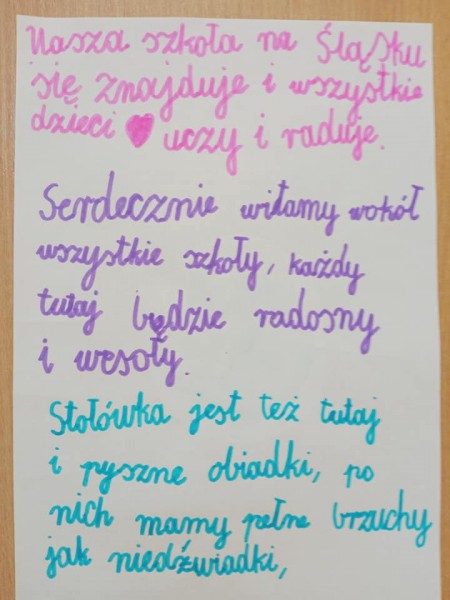 Nasza szkoła na Śląsku
się znajduje i wszystkie
dzieci ♥ uczy i raduje.
Serdecznie witamy wokół
wszystkie szkoły, każdy
tutaj będzie radosny
i wesoły.
Stołówka jest też tutaj
i pyszne obiadki, po
nich mamy pełne brzuchy
jak niedźwiadki,